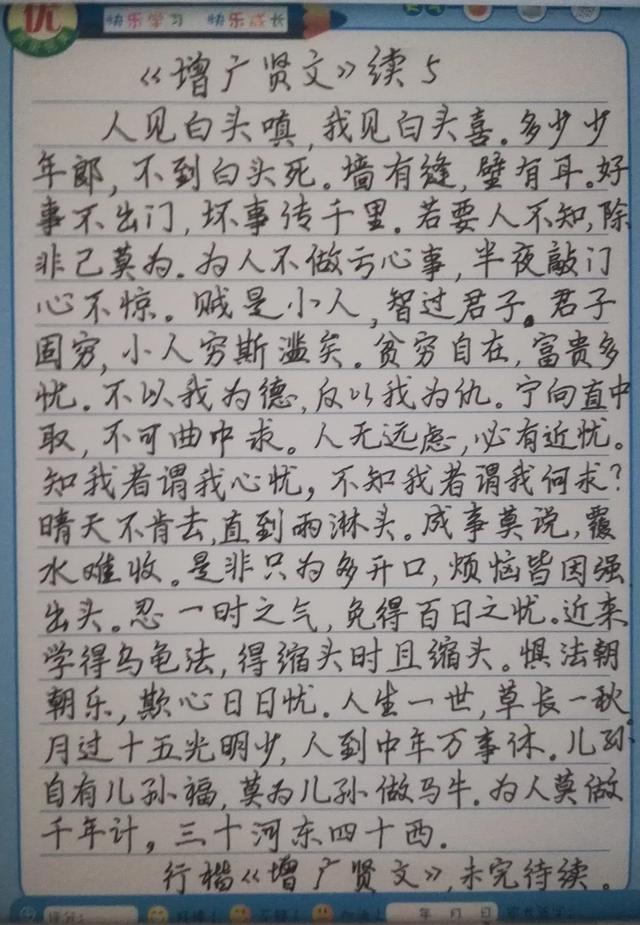 优
快乐学习 快乐成长
《增广贤文》续5
人见白头嗔,我见白头喜。多少少
年郎,不到白头死。墙有缝,壁有耳。好
事不出门,坏事传千里。若要人不知,除
非己莫为。为人不做亏心事,半夜敲门
心不惊。贼是小人,智过君子。君子
固穷,小人穷斯滥矣。贫穷自在,富贵多
忧。不以我为德,反以我为仇。宁向直中
取,不可曲中求。人无远虑,必有近忧。
知我者谓我心忧,不知我者谓我何求?
晴天不肯去,直到雨淋头。成事莫说,覆
水难收。是非只为多开口,烦恼皆因强
出头。忍一时之气,免得百日之忧。近来
学得乌龟法,得缩头时且缩头。惧法朝
朝乐,欺心日日忧。人生一世,草长一秋
月过十五光明少,人到中年万事休。儿孙
自有儿孙福,莫为儿孙做马牛。为人莫做
千年计,三十河东四十西。
行楷《增广贤文》,未完待续。
评分:
年 月 日